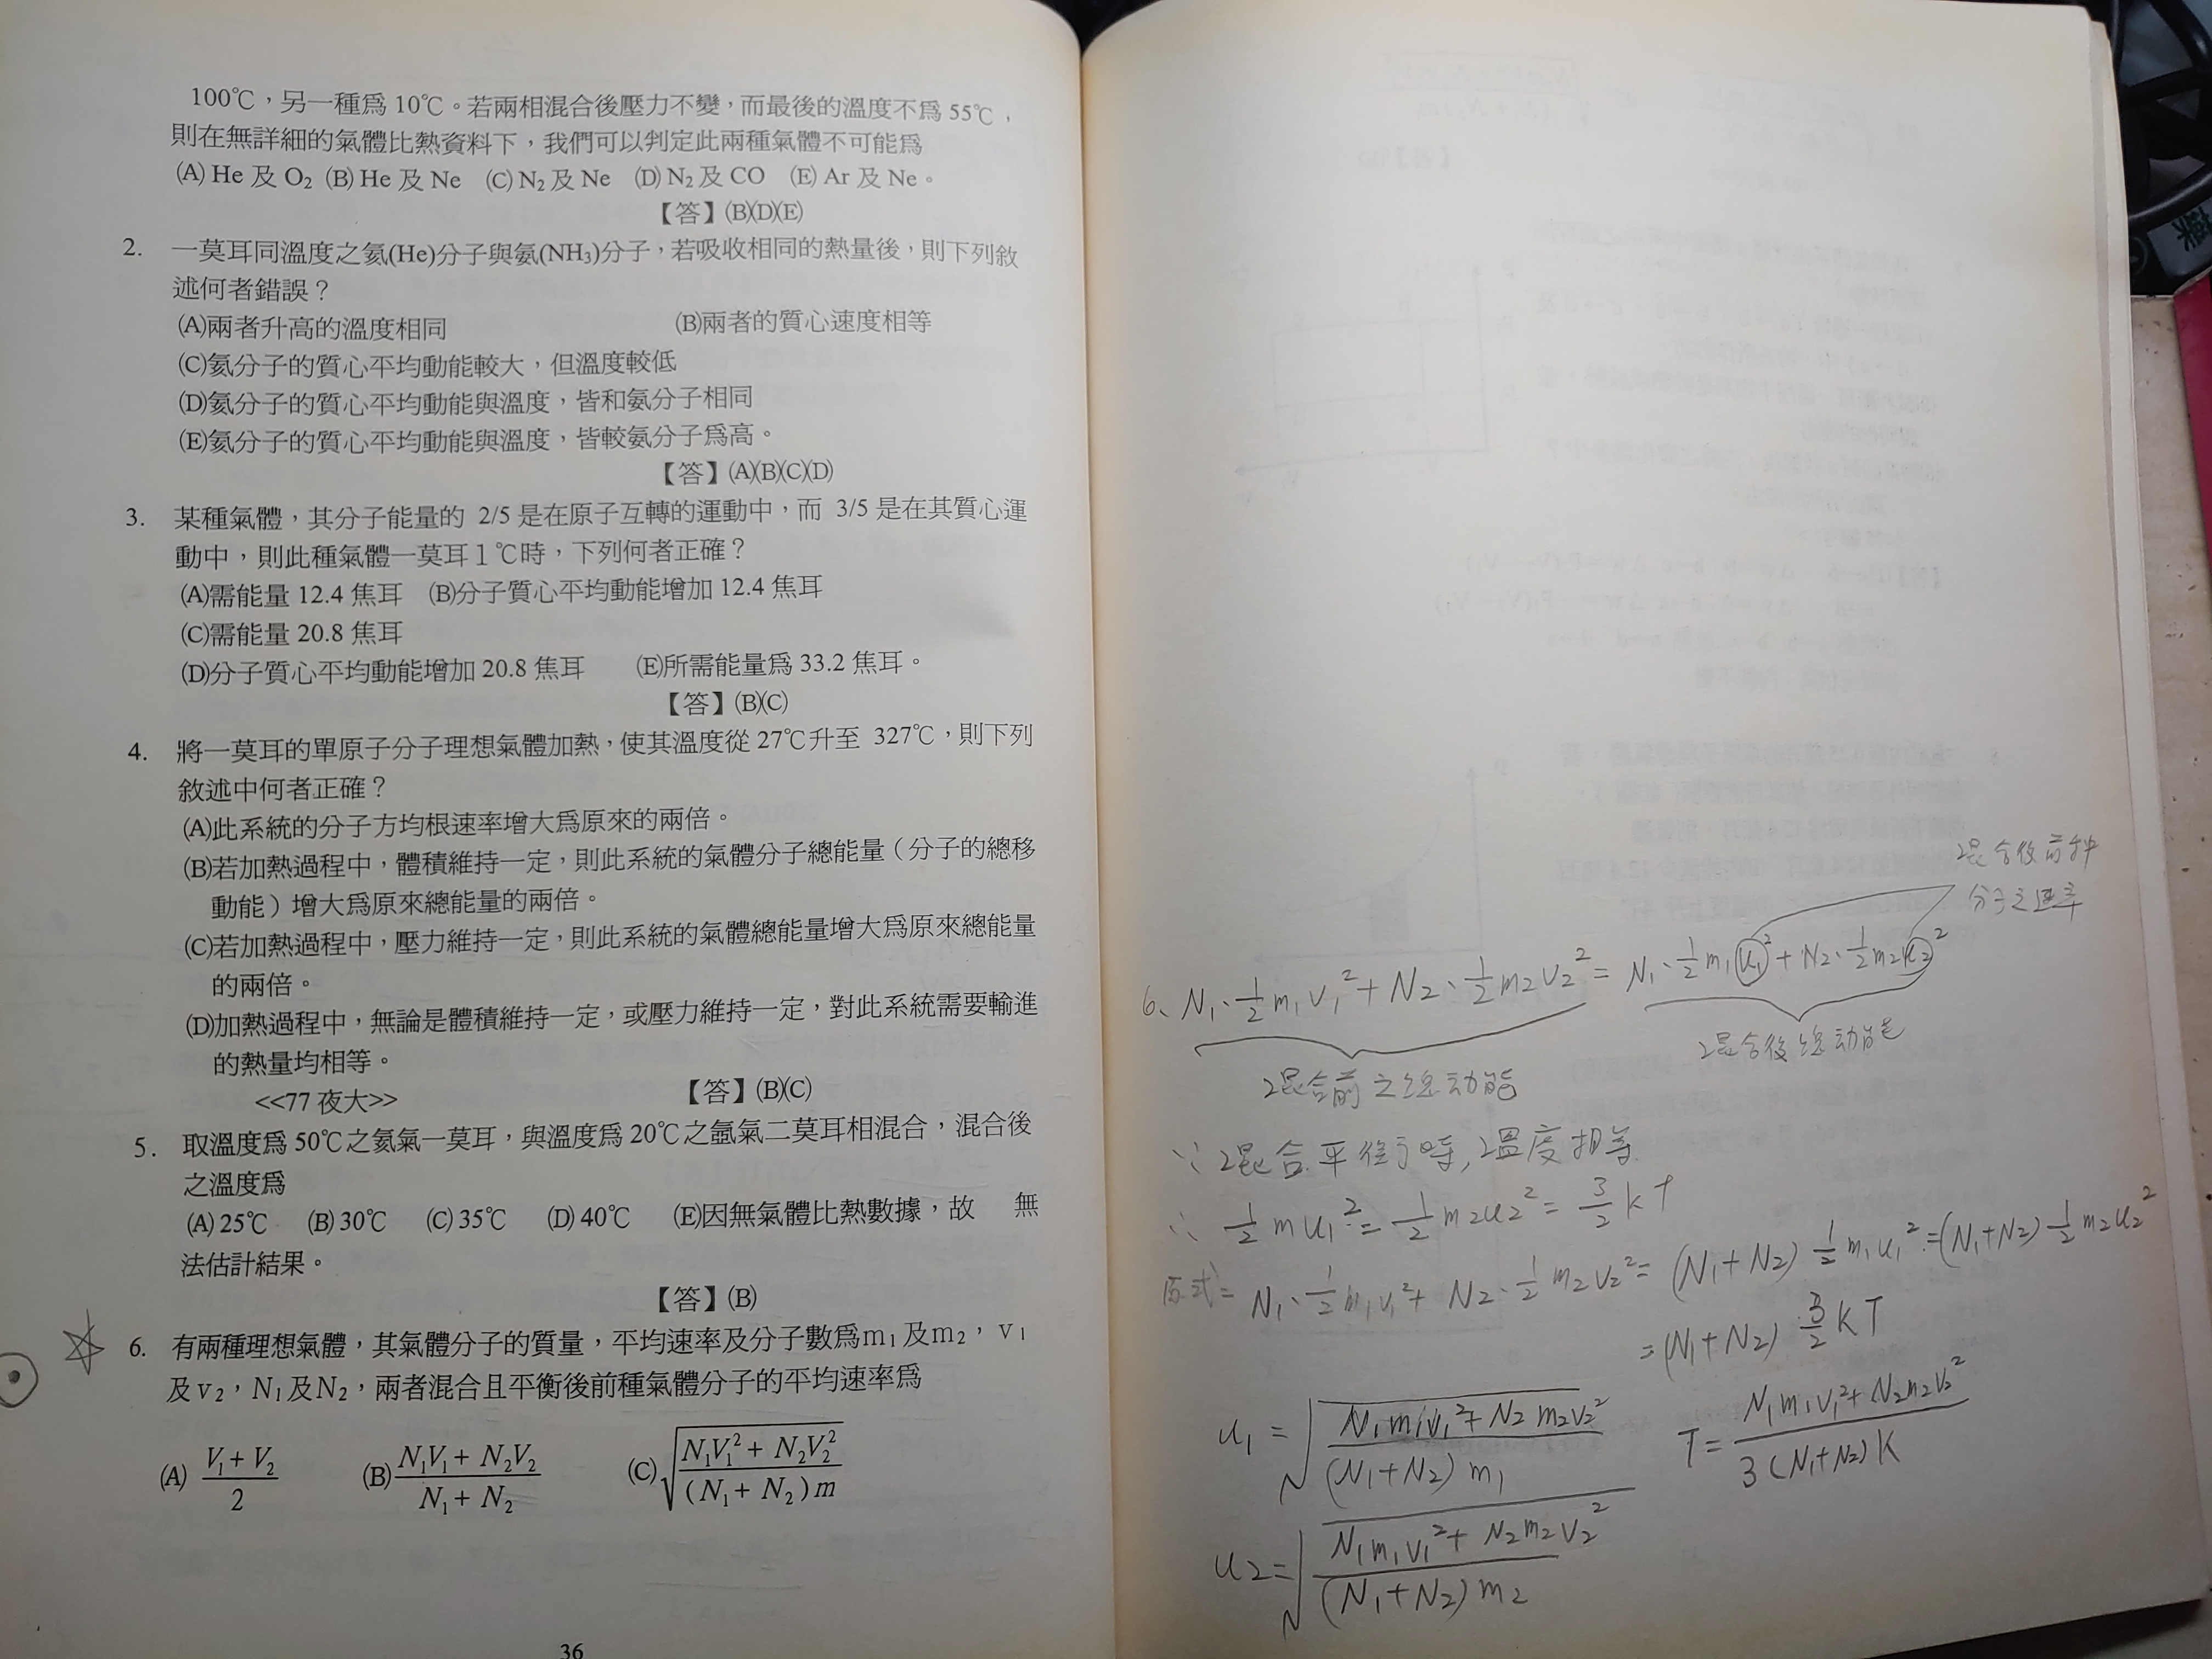 100℃，另一種為 10℃。若兩相混合後壓力不變，而最後的溫度不為 55℃，
則在無詳細的氣體比熱資料下，我們可以判定此兩種氣體不可能為
(A) He 及 O₂ (B) He 及 Ne (C) N₂ 及 Ne (D) N₂ 及 CO (E) Ar 及 Ne。
【答】(B)(D)(E)
2. 一莫耳同溫度之氦(He)分子與氨(NH₃)分子，若吸收相同的熱量後，則下列敘
述何者錯誤？
(A)兩者升高的溫度相同 (B)兩者的質心速度相等
(C)氦分子的質心平均動能較大，但溫度較低
(D)氦分子的質心平均動能與溫度，皆和氨分子相同
(E)氦分子的質心平均動能與溫度，皆較氨分子為高。
【答】(A)(B)(C)(D)
3. 某種氣體，其分子能量的 2/5 是在原子互轉的運動中，而 3/5 是在其質心運
動中，則此種氣體一莫耳１℃時，下列何者正確？
(A)需能量 12.4 焦耳 (B)分子質心平均動能增加 12.4 焦耳
(C)需能量 20.8 焦耳
(D)分子質心平均動能增加 20.8 焦耳 (E)所需能量為 33.2 焦耳。
【答】(B)(C)
4. 將一莫耳的單原子分子理想氣體加熱，使其溫度從 27℃升至 327℃，則下列
敘述中何者正確？
(A)此系統的分子方均根速率增大為原來的兩倍。
(B)若加熱過程中，體積維持一定，則此系統的氣體分子總能量（分子的總移
動能）增大為原來總能量的兩倍。
(C)若加熱過程中，壓力維持一定，則此系統的氣體總能量增大為原來總能量
的兩倍。
(D)加熱過程中，無論是體積維持一定，或壓力維持一定，對此系統需要輸進
的熱量均相等。
<<77 夜大>> 【答】(B)(C)
5. 取溫度為 50℃之氦氣一莫耳，與溫度為 20℃之氬氣二莫耳相混合，混合後
之溫度為
(A) 25℃ (B) 30℃ (C) 35℃ (D) 40℃ (E)因無氣體比熱數據，故 無
法估計結果。
【答】(B)
6. 有兩種理想氣體，其氣體分子的質量，平均速率及分子數為m₁及m₂，v₁
及v₂，N₁及N₂，兩者混合且平衡後前種氣體分子的平均速率為
(A) (V₁+V₂)/2 (B) (N₁V₁+N₂V₂)/(N₁+N₂) (C) √((N₁V₁²+N₂V₂²)/((N₁+N₂)m))
36
混合後前種
分子之速率
6、N₁·½m₁v₁²+N₂·½m₂v₂²=N₁·½m₁u₁²+N₂·½m₂u₂²
混合前之總动能
混合後總动能
∵混合平衡時，溫度相等
∴ ½mu₁²=½m₂u₂²=3/2 kT
原式= N₁·½m₁v₁²+N₂·½m₂v₂²=(N₁+N₂)½m₁u₁²=(N₁+N₂)½m₂u₂²
=(N₁+N₂) 3/2 KT
u₁=√((N₁m₁v₁²+N₂m₂v₂²)/((N₁+N₂)m₁))
T=(N₁m₁v₁²+N₂m₂v₂²)/(3(N₁+N₂)K)
u₂=√((N₁m₁v₁²+N₂m₂v₂²)/((N₁+N₂)m₂))